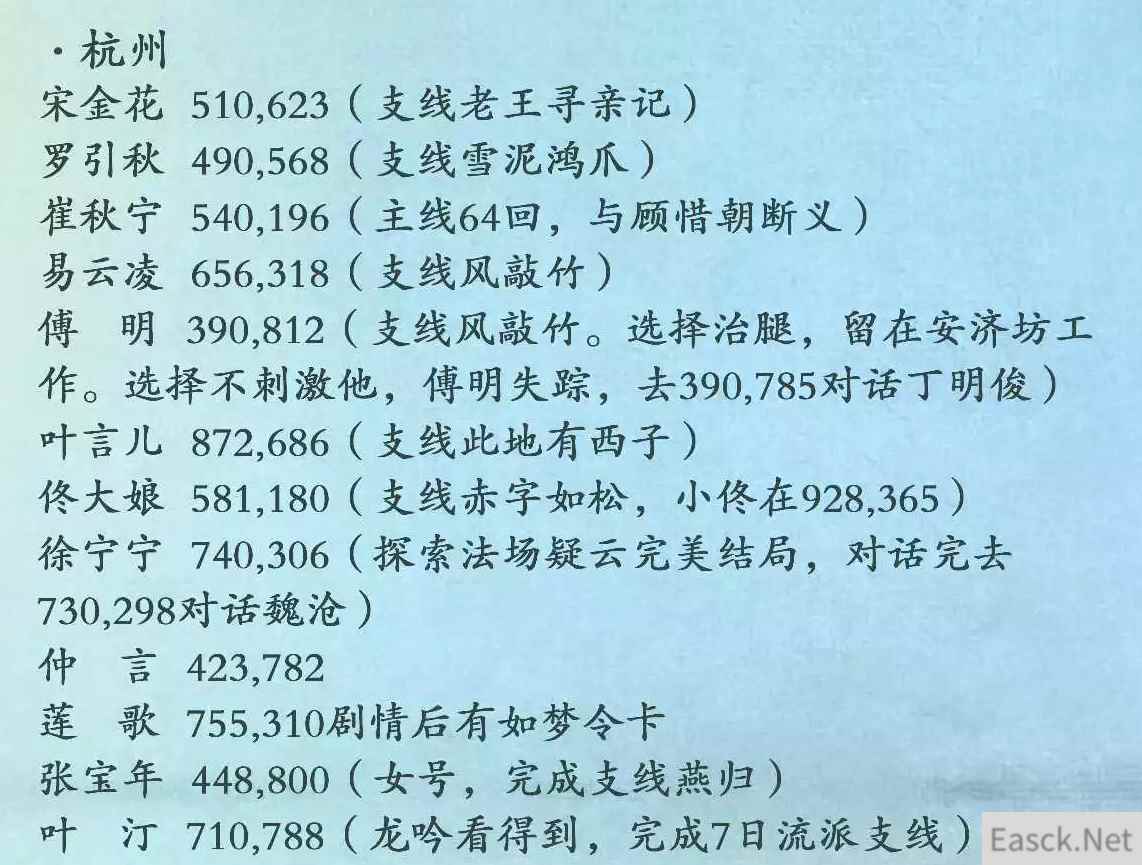 ·杭州
宋金花 510,623（支线老王寻亲记）
罗引秋 490,568（支线雪泥鸿爪）
崔秋宁 540,196（主线64回，与顾惜朝断义）
易云凌 656,318（支线风敲竹）
傅 明 390,812（支线风敲竹。选择治腿，留在安济坊工
作。选择不刺激他，傅明失踪，去390,785对话丁明俊）
叶言儿 872,686（支线此地有西子）
佟大娘 581,180（支线赤字如松，小佟在928,365）
徐宁宁 740,306（探索法场疑云完美结局，对话完去
730,298对话魏沧）
仲 言 423,782
莲 歌 755,310剧情后有如梦令卡
张宝年 448,800（女号，完成支线燕归）
叶 汀 710,788（龙吟看得到，完成7日流派支线）
Easck.Net